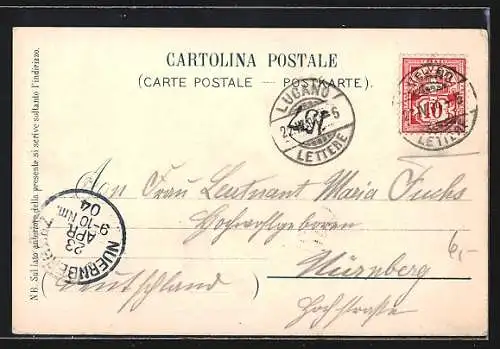 CARTOLINA POSTALE
(CARTE POSTALE — POSTKARTE).
N B. Sul lato anteriore della presente si scrive soltanto l'indirizzo.
LUGANO
LETTERE
10
LETTERE
NUERNBERG
23
APR.
04
9-10 Nm.
An Frau Leutnant Maria Fuchs
Hochwohlgeboren
Nürnberg
(Deutschland)
Hochstraße
6,-